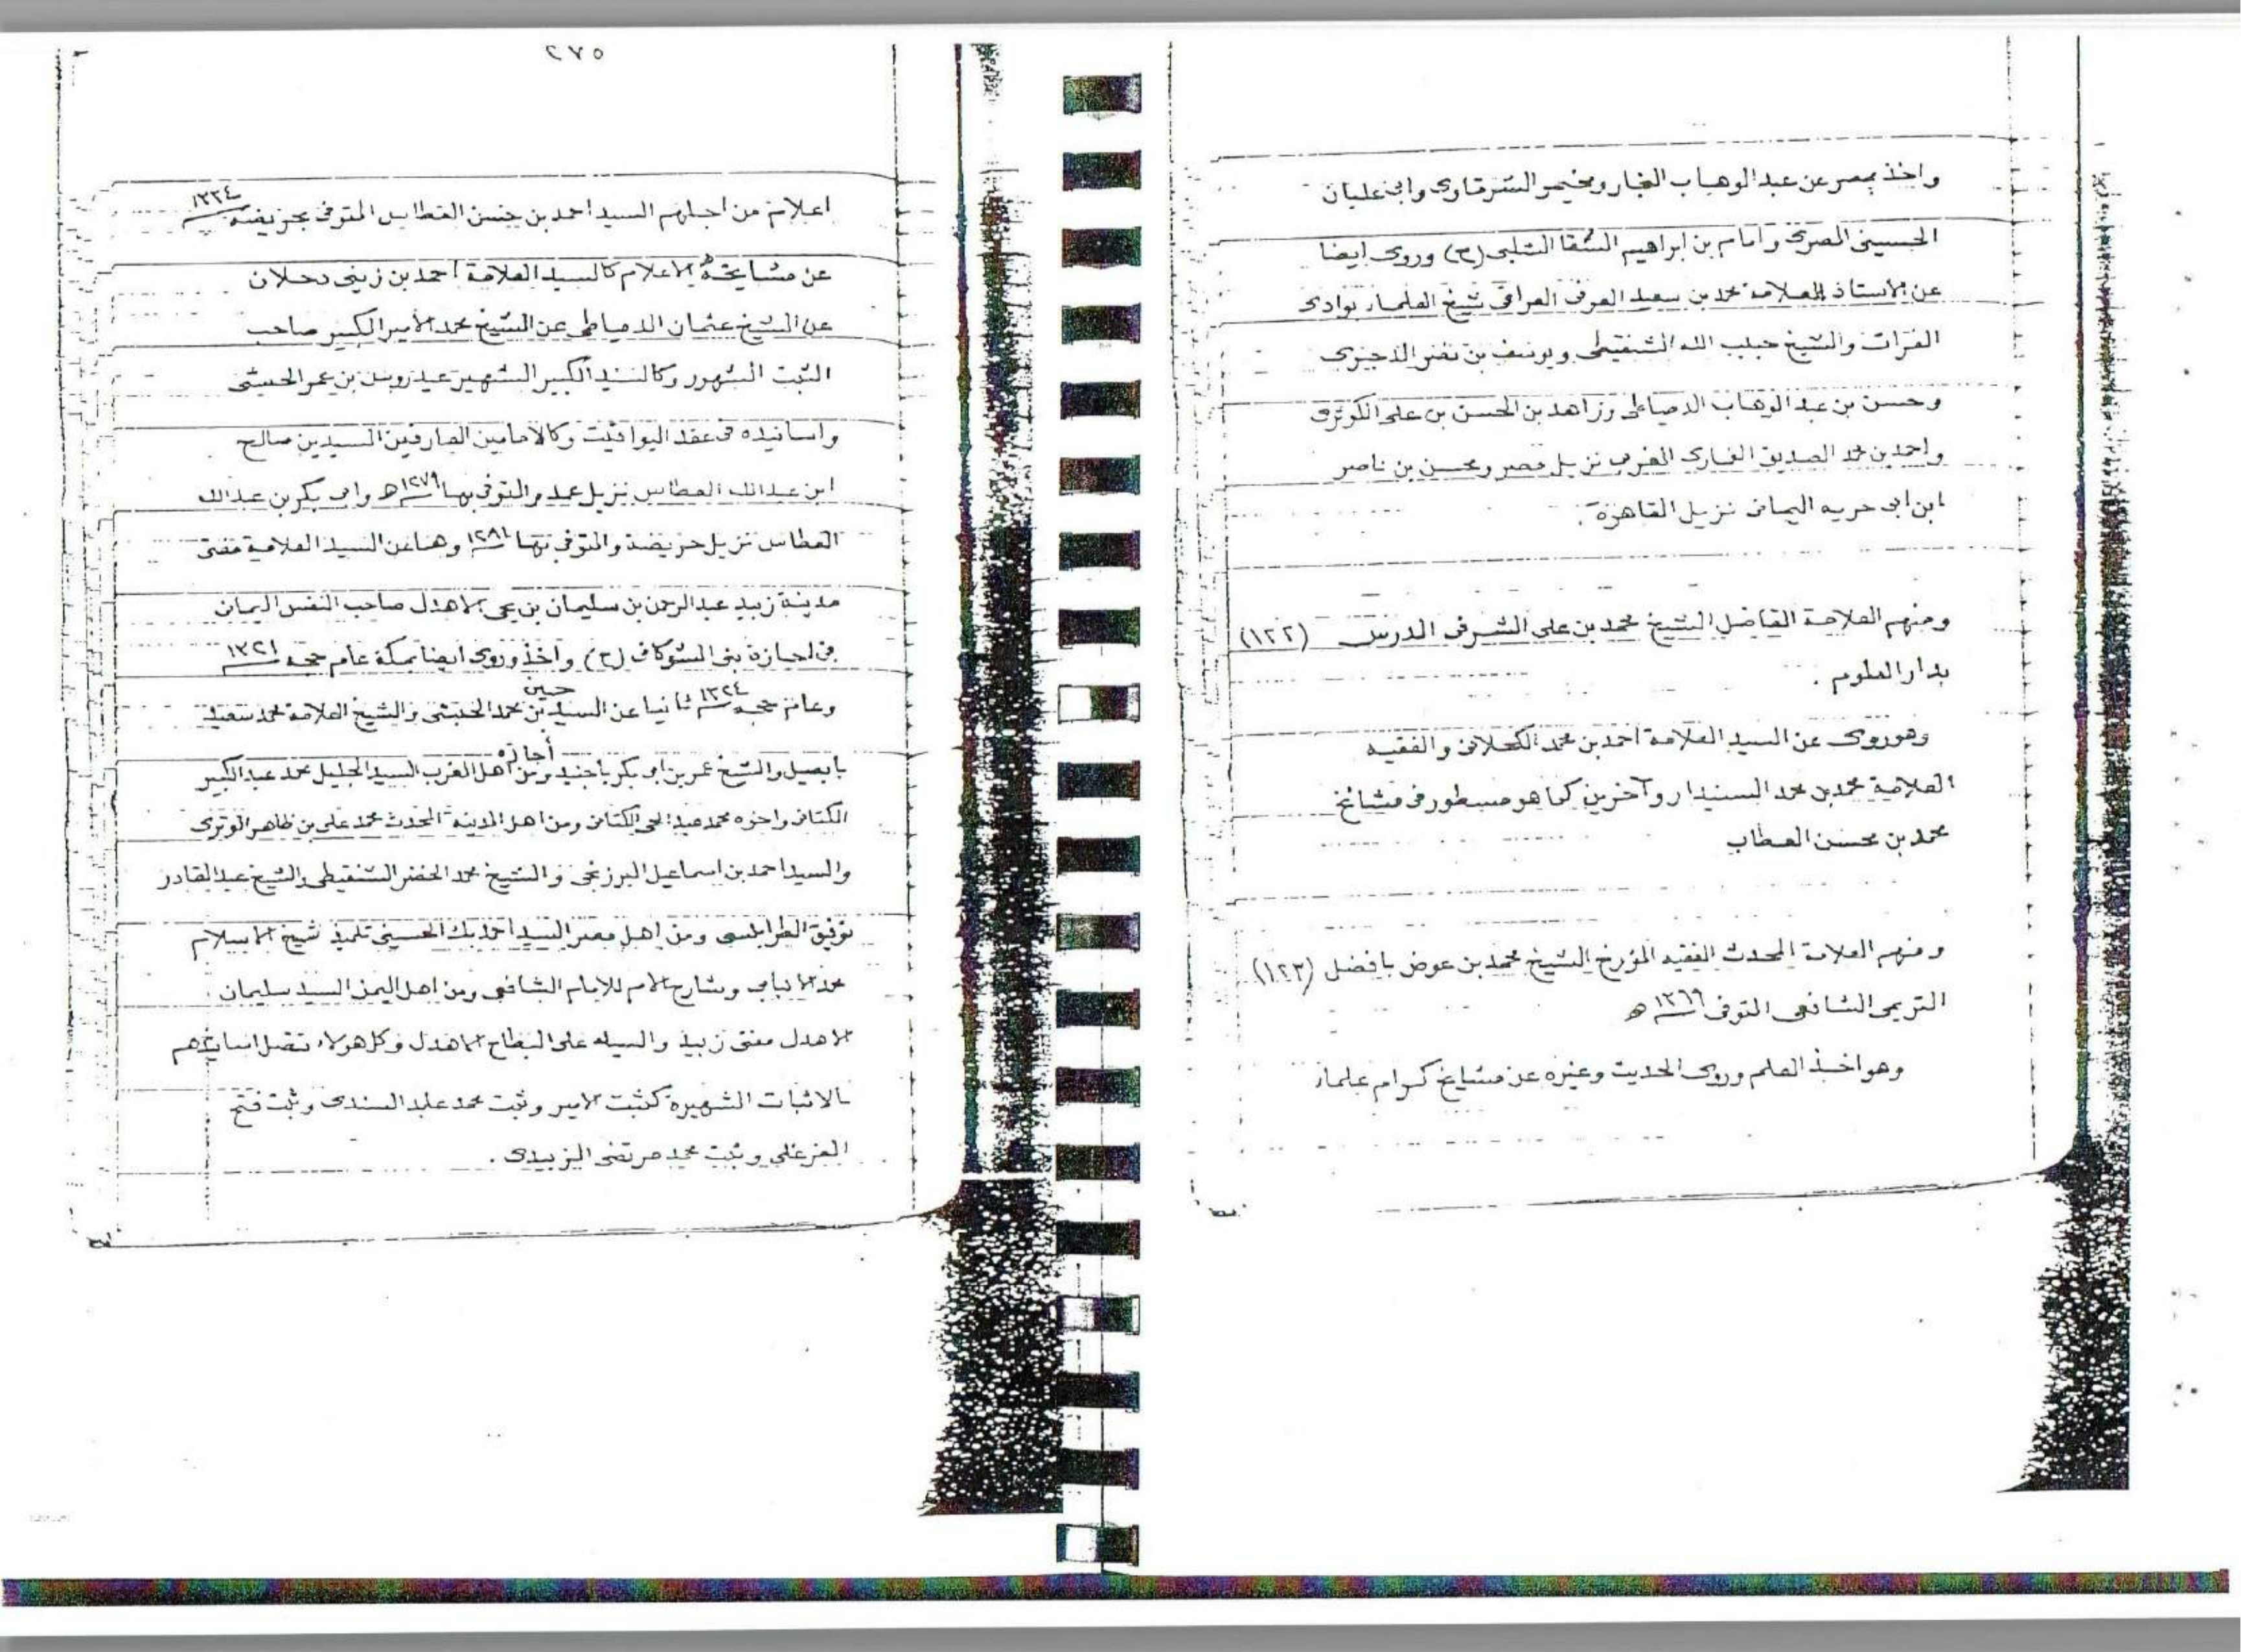 واخذ بمصر عن عبد الوهاب النجار ومخيمر الشرقاوى وابى عليان
الحسينى المصرى وامام بن ابراهيم السقا الشلبى (ح) وروى ايضا
عن الاستاذ العلامة محمد بن سعيد العرفى العراقى شيخ العلماء بوادى
الفرات والشيخ حبيب الله الشنقيطى ويوسف بن نصر الدجوى
وحسن بن عبد الوهاب الدمياطى وزاهد بن الحسن بن على الكوثرى
واحمد بن محمد الصديق الغمارى المغربى نزيل مصر ومحسن بن ناصر
ابن ابى حربه اليمانى نزيل القاهرة .
ومنهم العلامة الفاضل الشيخ محمد بن على الشرفى المدرس (١٢٢)
بدار العلوم .
وهو روى عن السيد العلامة احمد بن محمد الكحلانى والفقيه
العلامة محمد بن محمد السنيدار وآخرين كما هو مسطور فى مشائخ
محمد بن محسن العطاب
ومنهم العلامة المحدث الفقيه المؤرخ الشيخ محمد بن عوض بافضل (١٢٣)
التريمى الشافعى المتوفى ١٣٦٩ هـ
وهو اخذ العلم وروى الحديث وغيره عن مشايخ كرام علماء
٢٧٥
اعلام من اجلهم السيد احمد بن حسن العطاس المتوفى بحريضه ١٣٣٤
عن مشايخه الاعلام كالسيد العلامة احمد بن زينى دحلان
عن الشيخ عثمان الدمياطى عن الشيخ محمد الامير الكبير صاحب
الثبت المشهور وكالسيد الكبير الشهير عيدروس بن عمر الحبشى
واسانيده فى عقد اليواقيت وكالامامين العارفين السيدين صالح
ابن عبدالله العطاس نزيل عمد والمتوفى بها ١٢٧٩ هـ وابى بكر بن عبدالله
العطاس نزيل حريضة والمتوفى بها ١٢٨١ وهما عن السيد العلامة مفتى
مدينة زبيد عبد الرحمن بن سليمان بن يحى الاهدل صاحب النفس اليمانى
فى اجازة بنى الشوكانى (ح) واخذ وروى ايضا بمكة عام حجه ١٣٢١
وعام حجه ١٣٢٤ ثانيا عن السيد حسين بن محمد الحبشى والشيخ العلامة محمد سعيد
بابصيل والشيخ عمر بن ابى بكر باجنيد وأجازه من اهل المغرب السيد الجليل محمد عبد الكبير
الكتانى واخوه محمد عبد الحى الكتانى ومن اهل المدينة المحدث محمد على بن ظاهر الوترى
والسيد احمد بن اسماعيل البرزنجى والشيخ محمد الخضر الشنقيطى والشيخ عبد القادر
توفيق الطرابلسى ومن اهل مصر السيد احمد بك الحسينى تلميذ شيخ الاسلام
محمد الانبابى وشارح الام للامام الشافعى ومن اهل اليمن السيد سليمان
الاهدل مفتى زبيد والسيد على البطاح الاهدل وكل هولاء تتصل اسانيدهم
بالاثبات الشهيرة كثبت الامير وثبت محمد عابد السندى وثبت فتح
الفرغلى وثبت محمد مرتضى الزبيدى .